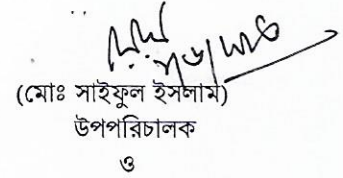 (মোঃ সাইফুল ইসলাম)
উপপরিচালক
ও